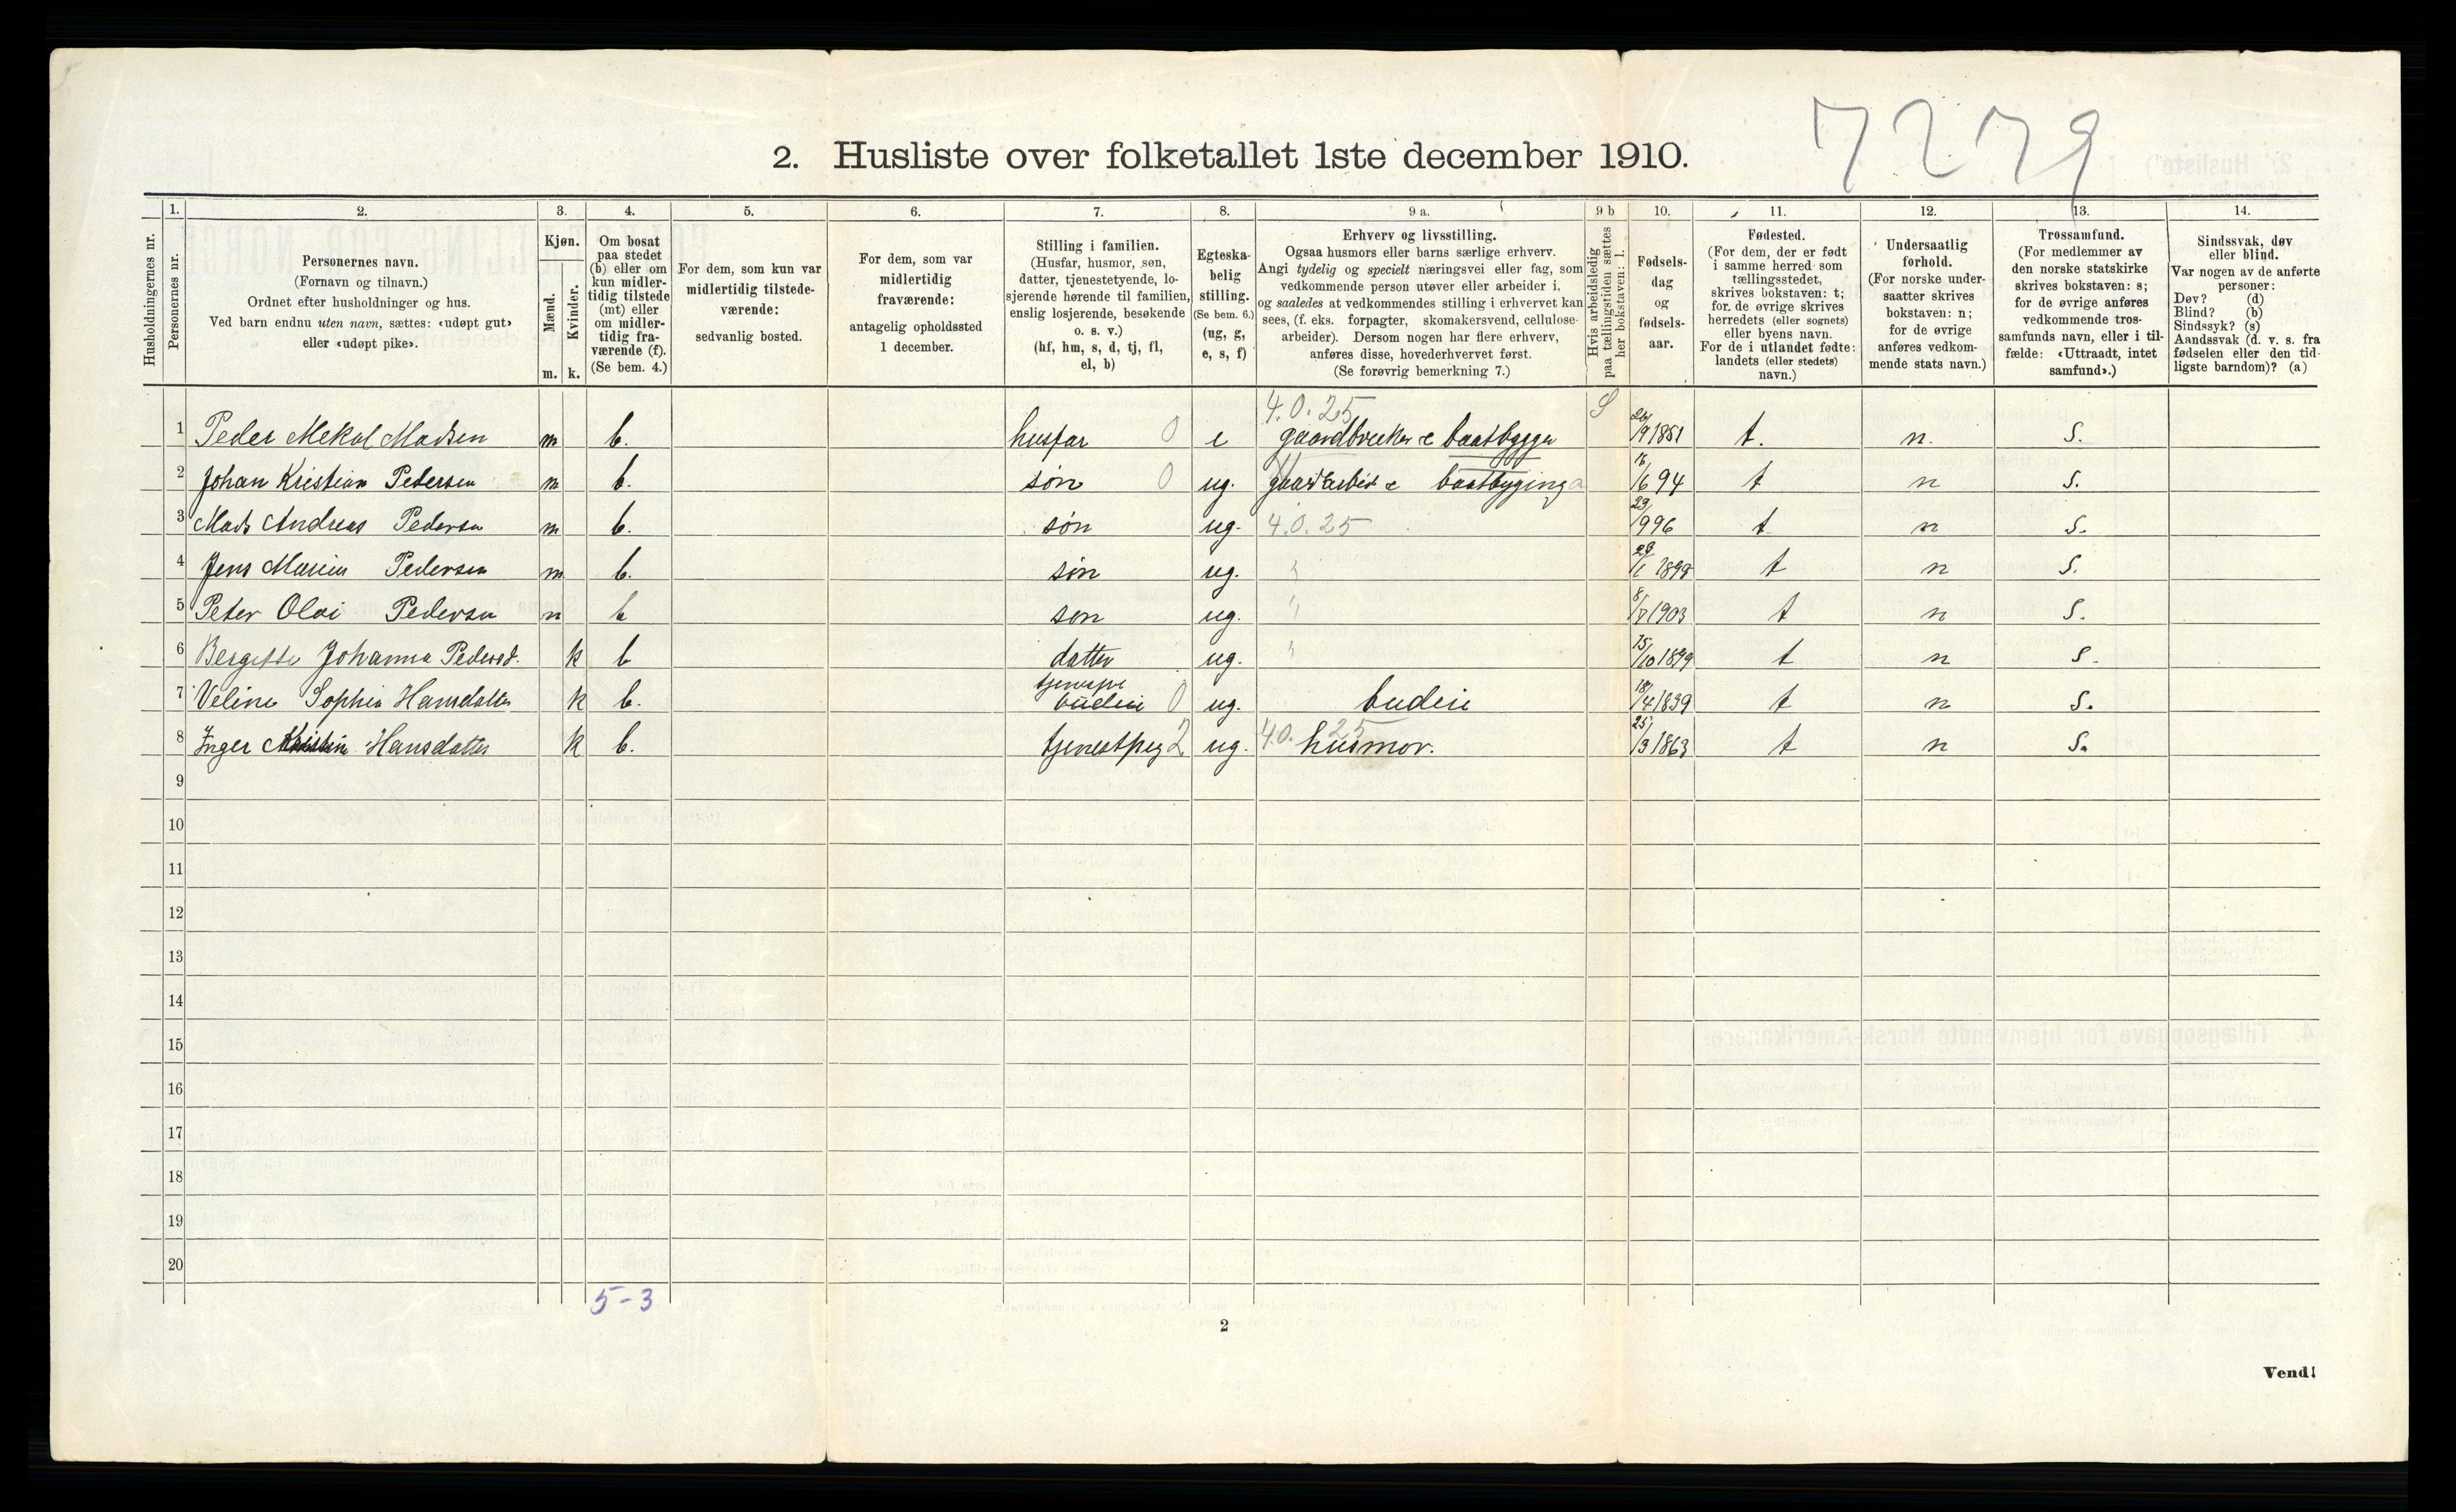 7279
2. Husliste over folketallet 1ste december 1910.
Husholdningernes nr.
1.
Personernes nr.
2.
Personernes navn.
(Fornavn og tilnavn.)
Ordnet efter husholdninger og hus.
Ved barn endnu uten navn, sættes: «udøpt gut»
eller «udøpt pike».
3.
Kjøn.
Mænd.
Kvinder.
m. k.
4.
Om bosat
paa stedet
(b) eller om
kun midler-
tidig tilstede
(mt) eller
om midler-
tidig fra-
værende (f).
(Se bem. 4.)
5.
For dem, som kun var
midlertidig tilstede-
værende:
sedvanlig bosted.
6.
For dem, som var
midlertidig
fraværende:
antagelig opholdssted
1 december.
7.
Stilling i familien.
(Husfar, husmor, søn,
datter, tjenestetyende, lo-
sjerende hørende til familien,
enslig losjerende, besøkende
o. s. v.)
(hf, hm, s, d, tj, fl,
el, b)
8.
Egteska-
belig
stilling.
(Se bem. 6.)
(ug, g,
e, s, f)
9 a.
Erhverv og livsstilling.
Ogsaa husmors eller barns særlige erhverv.
Angi tydelig og specielt næringsvei eller fag, som
vedkommende person utøver eller arbeider i,
og saaledes at vedkommendes stilling i erhvervet kan
sees, (f. eks. forpagter, skomakersvend, cellulose-
arbeider). Dersom nogen har flere erhverv,
anføres disse, hovederhvervet først.
(Se forøvrig bemerkning 7.)
9 b
Hvis arbeidsledig
paa tællingstiden sættes
her bokstaven: l.
10.
Fødsels-
dag
og
fødsels-
aar.
11.
Fødested.
(For dem, der er født
i samme herred som
tællingsstedet,
skrives bokstaven: t;
for de øvrige skrives
herredets (eller sognets)
eller byens navn.
For de i utlandet fødte:
landets (eller stedets)
navn.)
12.
Undersaatlig
forhold.
(For norske under-
saatter skrives
bokstaven: n;
for de øvrige
anføres vedkom-
mende stats navn.)
13.
Trossamfund.
(For medlemmer av
den norske statskirke
skrives bokstaven: s;
for de øvrige anføres
vedkommende tros-
samfunds navn, eller i til-
fælde: «Uttraadt, intet
samfund».)
14.
Sindssvak, døv
eller blind.
Var nogen av de anførte
personer:
Døv? (d)
Blind? (b)
Sindssyk? (s)
Aandssvak (d. v. s. fra
fødselen eller den tid-
ligste barndom)? (a)
4.0.25 S
1 Peder Mekal Madsen m b. husfar 0 e gaardbruker & baatbygger 26/9 1851 t. n. S.
2 Johan Kristian Pedersen m b. søn 0 ug. gaardarbeid & baatbyging a 16/6 94 t n S.
3 Mads Andreas Pedersen m b. søn ug. 4.0.25 29/9 96 t n S.
4 Jens Marius Pedersen m b. søn ug. t n S.
5 Peter Olai Pedersen m b søn ug. 8/7 1903 t n S.
6 Bergitte Johanna Pedersd. k b datter ug. 15/10 1899 t n S.
7 Veline Sophia Hansdatter k b. tjeneste budeie 0 ug. budeie 18/4 1839 t n S.
8 Inger Kristin Hansdatter k b. tjenestpig 2 ug. 4.0.25 husmor. 25/3 1863 t n S.
9
10
11
12
13
14
15
16
17
18
19
20
5-3
2
Vend!